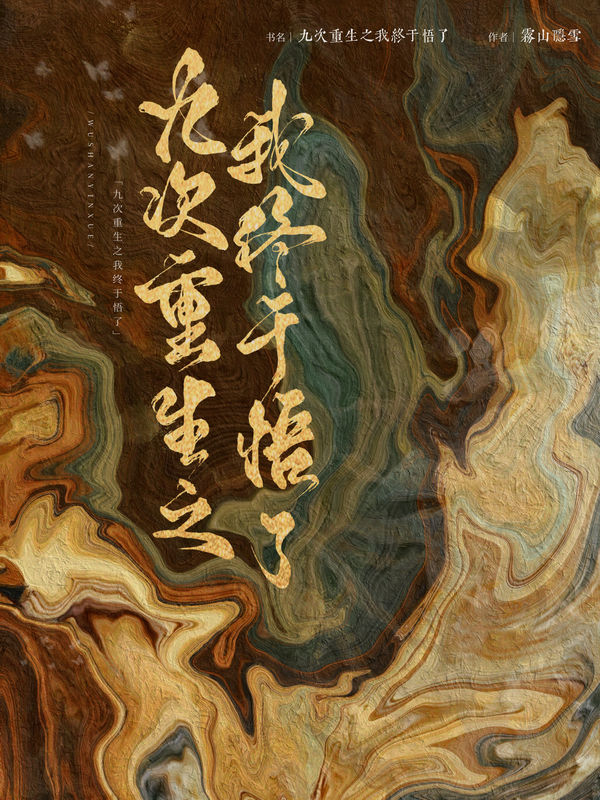 书名｜九次重生之我終于悟了
作者｜霧山隱雪
九次重生之
我终于悟了
「九次重生之我终于悟了」
/WUSHANYINXUE/